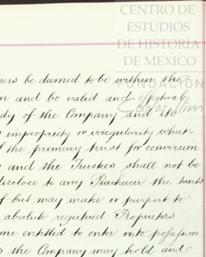 CENTRO DE
ESTUDIOS
DE HISTORIA
DE MEXICO
FUNDACIÓN
be deemed to be within the
and be valid and effectual
of the Company and its
impropriety or irregularity what-
the primary trust for conversion
and the Trustees shall not be
disclose to any Purchaser the trusts
but may make or purport to
absolute registered Proprietors
entitled to enter into possession
the Company may hold and